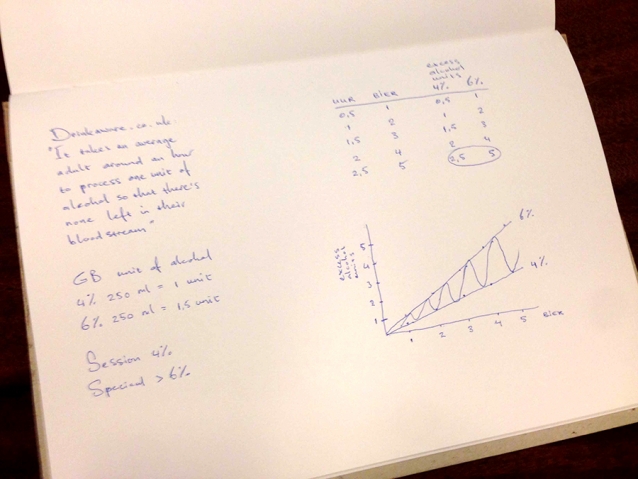 Drinkaware.co.uk:
"It takes an average
adult around an hour
to process one unit of
alcohol so that there's
none left in their
bloodstream"
GB unit of alcohol
4% 250 ml = 1 unit
6% 250 ml = 1,5 unit
Session 4%
Special > 6%
excess
alcohol
units
UUR BIER 4% 6%
0,5 1 0,5 1
1 2 1 2
1,5 3 1,5 3
2 4 2 4
2,5 5 2,5 5
excess
alcohol
units
5
4
3
2
1
6%
4%
1 2 3 4 5 BIER